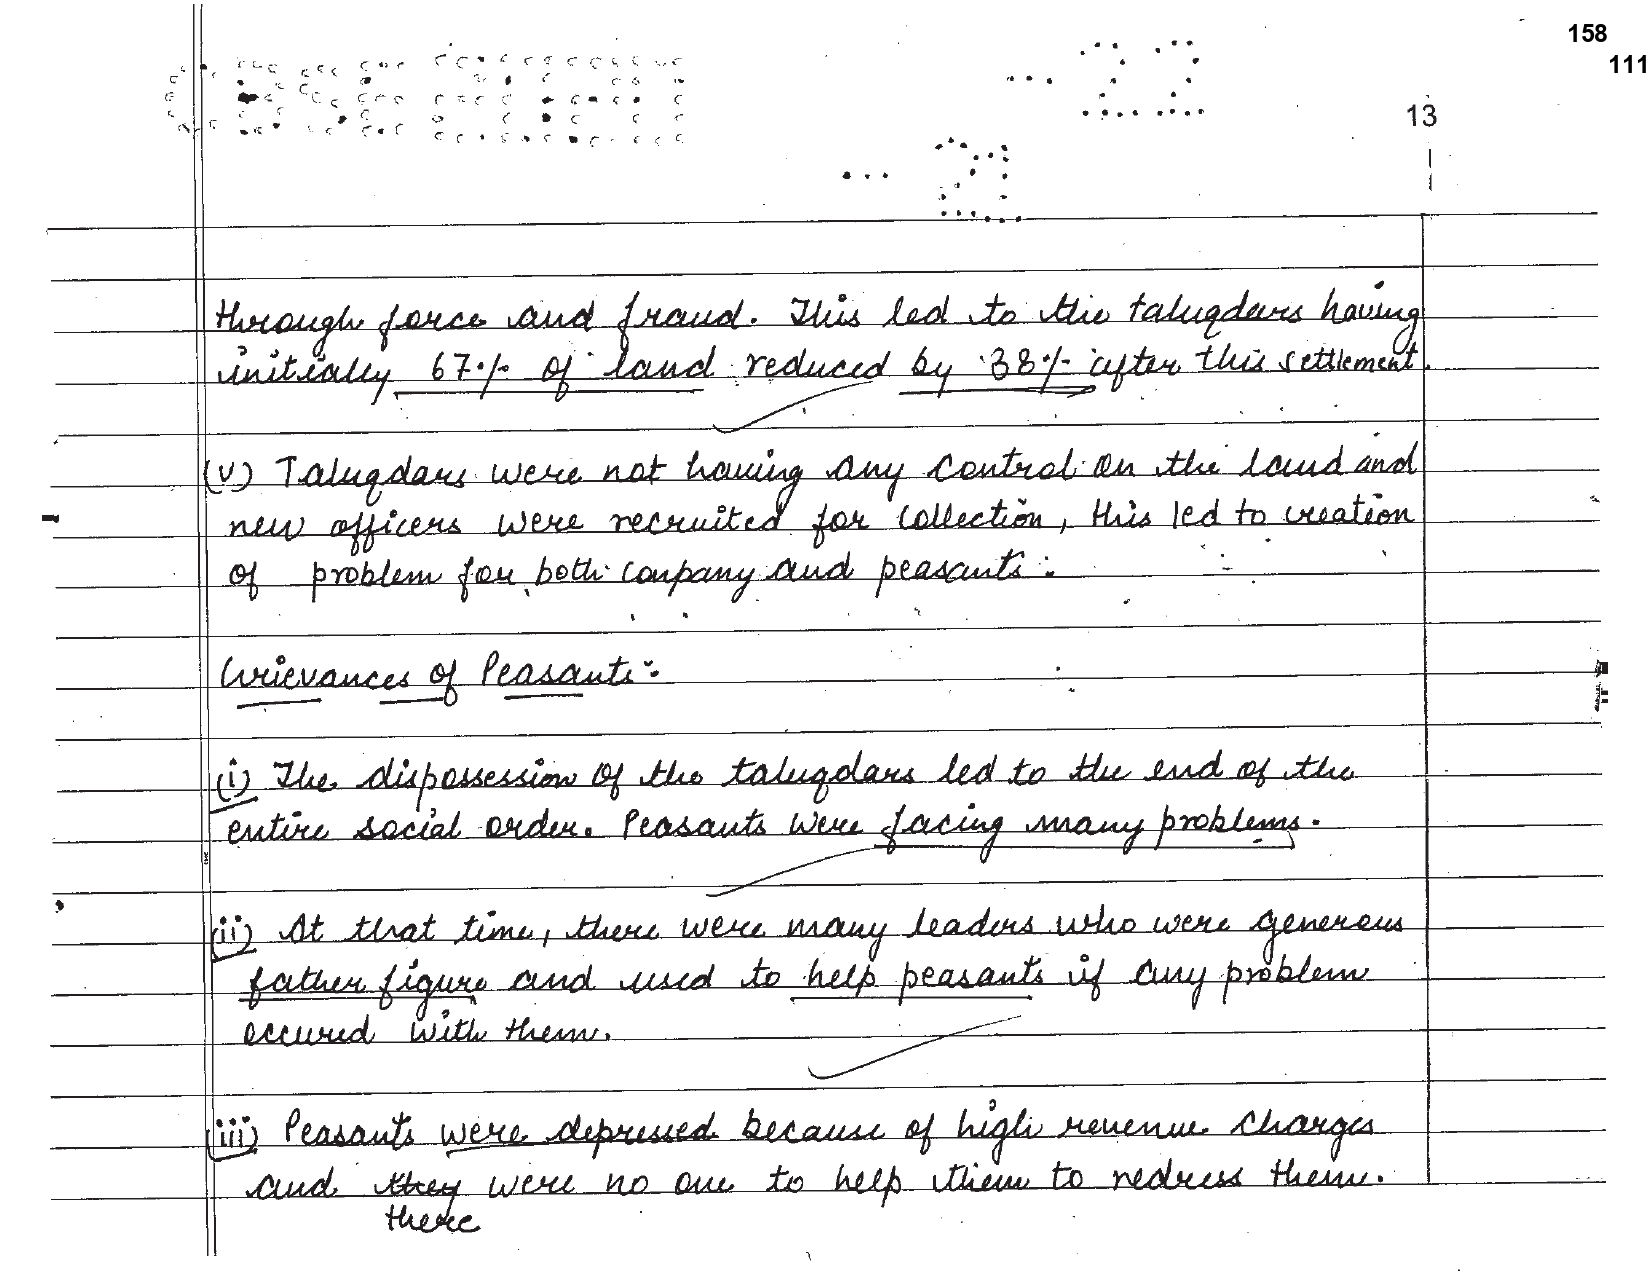 158
111
13
through force and fraud. This led to the taluqdars having
initially 67% of land reduced by 38% after this settlement.
(v) Taluqdars were not having any control on the land and
new officers were recruited for collection, this led to creation
of problem for both conpany and peasants.
Grievances of Peasants:
(i) The dispossession of the taluqdars led to the end of the
entire social order. Peasants were facing many problems.
(ii) At that time, there were many leaders who were generous
father figure and used to help peasants if any problem
occured with them.
(iii) Peasants were depressed because of high revenue charges
and they were no one to help them to redress them.
there